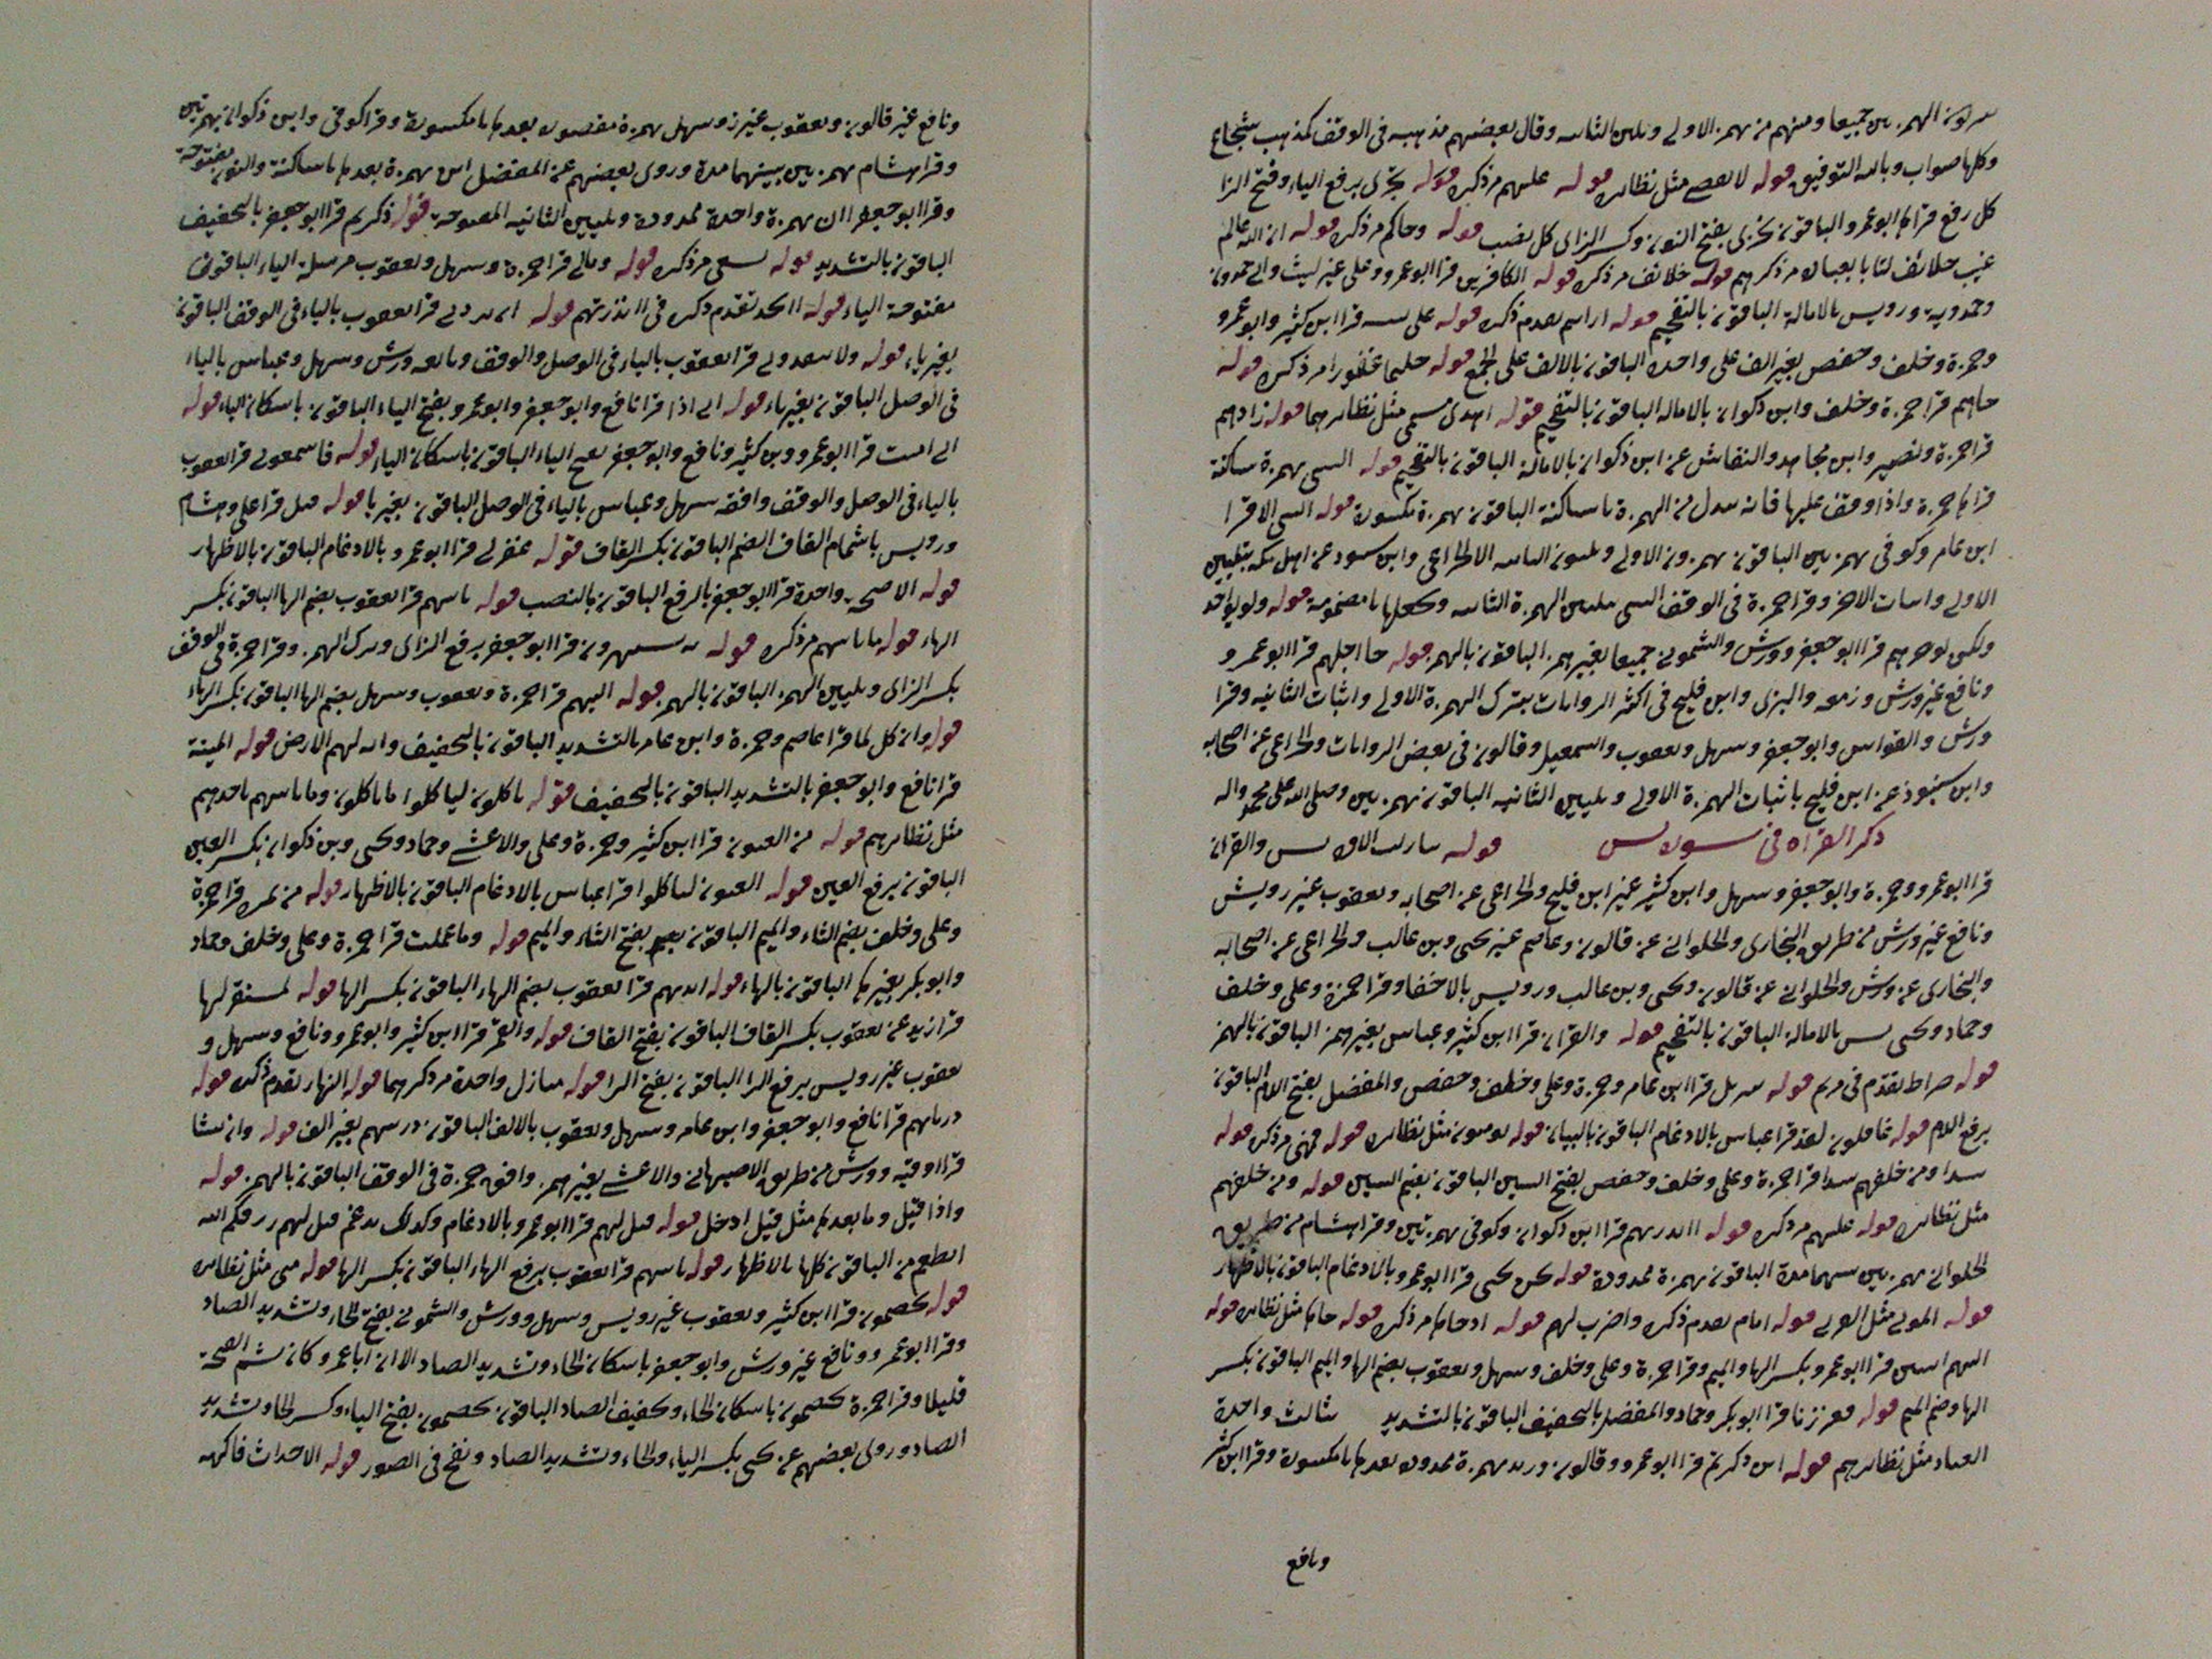 الهمزتين جميعا ومنهم من يهمز الاولى ويلين الثانيه وقال بعضهم مذهبه فى الوقف كمذهب شجاع
وكلها صواب وبالله التوفيق قوله لا يقضى مثل نظائره قوله عليهم مر ذكره قوله يجزى برفع الياء وفتح الزا
كل رفع قراها ابو عمرو الباقون نجزى بفتح النون وكسر الزاى كل نصب قوله وجاكم مر ذكره قوله ان الله عالم
غيب خلائف مر ذكرهم قوله خلائف مر ذكره قوله الكافرين قرا ابو عمرو وعلى غير ليث والى حمدون
وحمدويه ورويس بالامالة الباقون بالتفخيم قوله ارايتم تقدم ذكره قوله على بينه قرا ابن كثير وابو عمرو
وحمزة وخلف وحفص بغير الف على واحده الباقون بالالف على الجمع قوله حليما غفورا مر ذكره قوله
جاهم قرا حمزة وخلف وابن ذكوان بالاماله الباقون بالتفخيم قوله اهدى مسمى مثل نظائرهما قوله زادهم
قرا حمزة ونصير وابن مجاهد والنقاش عن ابن ذكوان بالامالة الباقون بالتفخيم قوله السى بهمزة ساكنة
قراها حمزة واذا وقف عليها فانه يبدل من الهمزة يا ساكنة الباقون بهمزة مكسورة قوله السى الا قرا
ابن عامر وكوفى بهمزتين الباقون يهمزون الاولى ويلينون الثانيه الا الخزاعى وابن عن اهل مكه بتليين
الاولى واثبات الاخر وقرا حمزة فى الوقف السى بتليين الهمزة الثانيه ويجعلها يا مضمومة قوله ولو يواخذ
ولكن يوخرهم قرا ابو جعفر وورش والشمونى جميعا بغير همز الباقون بالهمز قوله جا اجلهم قرا ابو عمرو و
ونافع غير ورش وزمعه والبزى وابن فليح فى اكثر الروايات بترك الهمزة الاولى واثبات الثانيه وقرا
ورش والقواس وابو جعفر وسهل ويعقوب واسمعيل وقالون فى بعض الروايات والخزاعى عن اصحابه
وابن شنبوذ عن ابن فليح باثبات الهمزة الاولى وتليين الثانيه الباقون بهمزتين وصلى الله على محمد واله
ذكر القراه فى سورة يس قوله تبارك الاول يس والقران
قرا ابو عمرو وحمزة وابو جعفر وسهل وابن كثير غير ابن فليح والخزاعى عن اصحابه ويعقوب غير رويس
ونافع غير ورش من طريق البخارى والحلوانى عن قالون وعاصم غير يحيى وبن غالب والخزاعى عن اصحابه
والبخارى عن ورش والحلوانى عن قالون ويحيى وبن غالب ورويس بالاخفا وقرا حمزة وعلى وخلف
وحماد ويحيى يس بالامالة الباقون بالتفخيم قوله والقران قرا ابن كثير وعباس بغير همز الباقون بالهمز
قوله صراط تقدم فى مريم قوله تنزيل قرا ابن عامر وحمزة وعلى وخلف وحفص والمفضل بفتح اللام الباقون
برفع اللام قوله غافلون لقد قرا عباس بالادغام الباقون بالبيان قوله يومنون مثل نظائره قوله فهى مر ذكره قوله
سدا ومن خلفهم سدا قرا حمزة وعلى وخلف وحفص بفتح السين الباقون بضم السين قوله ومن خلفهم
مثل نظائره قوله عليهم مر ذكره قوله ااندرتهم قرا ابن ذكوان وكوفى بهمزتين وقرا هشام من طريق
الحلوانى بهمزتين بينهما مدة الباقون بهمزة ممدودة قوله نحن نحيى قرا ابو عمرو بالادغام الباقون بالاظهار
قوله الموتى مثل العربى قوله امام تقدم ذكره واضرب لهم قوله اذ جاها مر ذكره قوله جاها مثل نظائره قوله
اليهم اثنين قرا ابو عمرو بكسر الها والميم وقرا حمزة وعلى وخلف وسهل ويعقوب بضم الها والميم الباقون بكسر
الها وضم الميم قوله فعززنا قرا ابو بكر وحماد والمفضل بالتخفيف الباقون بالتشديد بثالث واحدة
العباد مثل نظائرهم قوله اين ذكرتم قرا ابو عمرو وقالون وزيد بهمزة ممدودة بعدها يا مكسورة وقرا ابن كثير
ونافع
ونافع غير قالون ويعقوب غير زيد وسهل بهمزة مقصوره بعدها يا مكسورة وقرا كوفى وابن ذكوان بهمزتين
وقرا هشام بهمزتين بينهما مدة وروى بعضهم عن المفضل اين بهمزة بعدها يا ساكنة والنون مفتوحة
وقرا ابو جعفر اان بهمزة واحدة ممدودة وتليين الثانيه المفتوحة قوله ذكرتم قرا ابو جعفر بالتخفيف
الباقون بالتشديد قوله يسعى مر ذكره قوله ومالى قرا حمزة وسهل ويعقوب مرسلة الياء الباقون
مفتوحة الياء قوله ااتخذ تقدم ذكره فى ااندرتهم قوله ان يردنى قرا يعقوب بالياء فى الوقف الباقون
بغير ياء قوله ولا ينقذونى قرا يعقوب بالياء فى الوصل والوقف وتابعه ورش وسهل وعباس بالياء
فى الوصل الباقون بغير ياء قوله انى اذا قرا نافع وابو جعفر وابو عمرو بفتح الياء الباقون باسكان الياء قوله
انى امنت قرا ابو عمرو وبن كثير ونافع وابو جعفر بفتح الياء الباقون باسكان الياء قوله فاسمعونى قرا يعقوب
بالياء فى الوصل والوقف وافقه سهل وعباس بالياء فى الوصل الباقون بغير يا قوله قيل قرا على وهشام
ورويس باشمام القاف الضم الباقون بكسر القاف قوله غفر لى قرا ابو عمرو بالادغام الباقون بالاظهار
قوله الا صيحة واحدة قرا ابو جعفر بالرفع الباقون بالنصب قوله ياتيهم قرا يعقوب بضم الها الباقون بكسر
الهاء قوله ما ياتيهم مر ذكره قوله يستهزءون قرا ابو جعفر برفع الزاى وترك الهمز وقرا حمزة فى الوقف
بكسر الزاى وتليين الهمز الباقون بالهمز قوله اليهم قرا حمزة ويعقوب وسهل بضم الها الباقون بكسر الهاء
قوله وان كل لما قرا عاصم وحمزة وابن عامر بالتشديد الباقون بالتخفيف وايه لهم الارض قوله الميتة
قرا نافع وابو جعفر بالتشديد الباقون بالتخفيف قوله ياكلون لياكلوا ما ياكلون وما ياتيهم ياخذهم
مثل نظائرهم قوله من العيون قرا ابن كثير وحمزة وعلى والاعشى وحماد ويحيى وبن ذكوان بكسر العين
الباقون برفع العين قوله العيون لياكلوا قرا عباس بالادغام الباقون بالاظهار قوله من ثمره قرا حمزة
وعلى وخلف بضم الثاء والميم الباقون بفتح الثاء والميم قوله وما عملت قرا حمزة وعلى وخلف وحماد
وابو بكر بغير ها الباقون بالهاء قوله ايديهم قرا يعقوب بضم الهاء الباقون بكسر الها قوله لمستقر لها
قرا زيد عن يعقوب بكسر القاف الباقون بفتح القاف قوله والقمر قرا ابن كثير وابو عمرو ونافع وسهل و
يعقوب غير رويس برفع الرا الباقون بفتح الرا قوله منازل واحدة مر ذكرهما قوله النهار تقدم ذكره قوله
ذرياتهم قرا نافع وابو جعفر وابن عامر وسهل ويعقوب بالالف الباقون ذريتهم بغير الف قوله وان نشا
قرا اوقيه وورش من طريق الاصبهانى والاعشى بغير همز وافق حمزة فى الوقف الباقون بالهمز قوله
واذا قيل وما بعدها مثل قيل ادخل قوله قيل لهم قرا ابو عمرو بالادغام وكذلك يدغم قيل لهم رزقكم الله
انطعم من الباقون كلها بالاظهار قوله تاتيهم قرا يعقوب برفع الهاء الباقون بكسر الها قوله متى مثل نظائره
قوله يخصمون قرا ابن كثير ويعقوب غير رويس وسهل وورش والشمونى بفتح الخاء وتشديد الصاد
وقرا ابو عمرو ونافع غير ورش وابو جعفر باسكان الخاء وتشديد الصاد الا ان ابا عمرو كان يشم الفتحة
قليلا وقرا حمزة يخصمون باسكان الخاء وتخفيف الصاد الباقون يخصمون بفتح الياء وكسر الخاء وتشديد
الصاد وروى بعضهم عن يحيى بكسر الياء والخاء وتشديد الصاد ونفخ فى الصور قوله الاجداث فاكهه